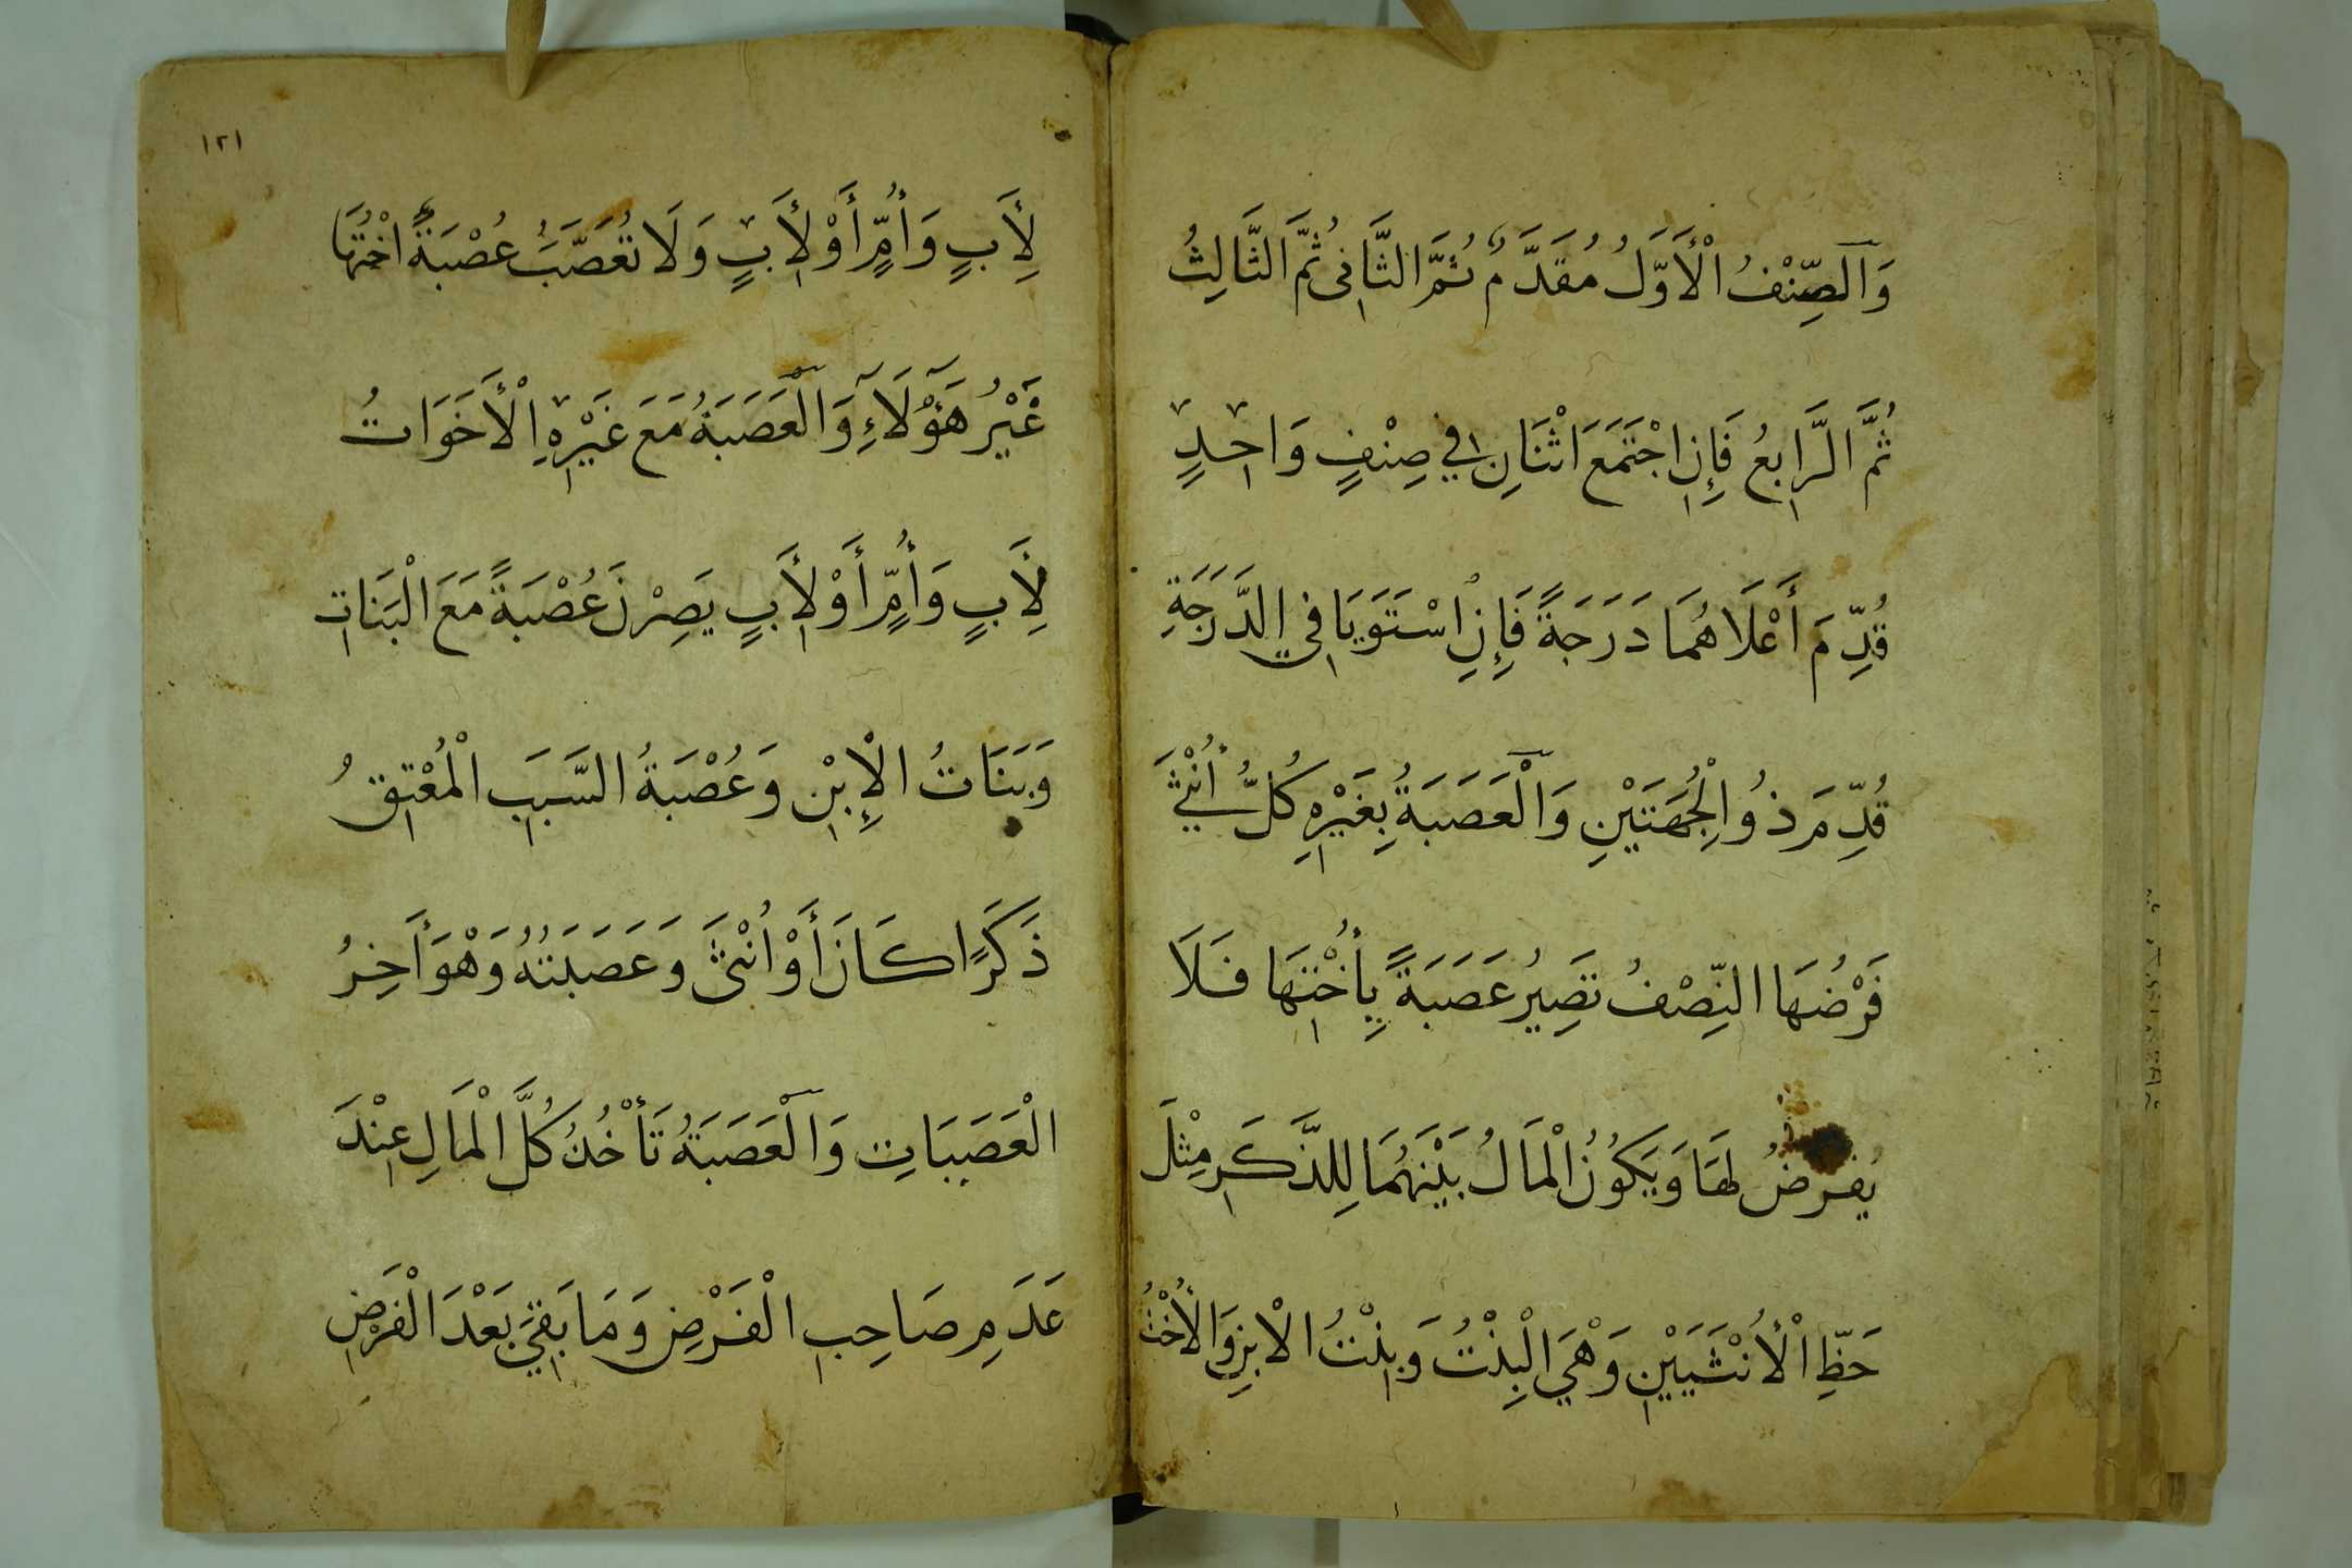 وَالصِّنْفُ الْأَوَّلُ مُقَدَّمٌ ثُمَّ الثَّانِى ثُمَّ الثَّالِثُ
ثُمَّ الرَّابِعُ فَإِنِ اجْتَمَعَ اثْنَانِ فِي صِنْفٍ وَاحِدٍ
قُدِّمَ أَعْلَاهُمَا دَرَجَةً فَإِنِ اسْتَوَيَا فِي الدَّرَجَةِ
قُدِّمَ ذُو الْجِهَتَيْنِ وَالْعَصَبَةُ بِغَيْرِهِ كُلُّ أُنْثَى
فَرْضُهَا النِّصْفُ تَصِيرُ عَصَبَةً بِأُخْتِهَا فَلَا
يُفْرَضُ لَهَا وَيَكُونُ الْمَالُ بَيْنَهُمَا لِلذَّكَرِ مِثْلَ
حَظِّ الْأُنْثَيَيْنِ وَهْيَ الْبِنْتُ وَبِنْتُ الْابْنِ وَالْأُخْتُ
١٢١
لِأَبٍ وَأُمٍّ أَوْ لِأَبٍ وَلَا تُعَصَّبُ عُصْبَةً اخْتُهَا
غَيْرُ هَؤُلَاءِ وَالْعَصَبَةُ مَعَ غَيْرِهِ الْأَخَوَاتُ
لِأَبٍ وَأُمٍّ أَوْ لِأَبٍ يَصِرْنَ عُصْبَةً مَعَ الْبَنَاتِ
وَبَنَاتُ الْإِبْنِ وَعُصْبَةُ السَّبَبِ الْمُعْتِقُ
ذَكَرًا كَانَ أَوْ اُنْثَى وَعَصَبَتُهُ وَهْوَ أَخِرُ
الْعَصَبَاتِ وَالْعَصَبَةُ تَأْخُذُ كُلَّ الْمَالِ عِنْدَ
عَدَمِ صَاحِبِ الْفَرْضِ وَمَا بَقِيَ بَعْدَ الْفَرْضِ